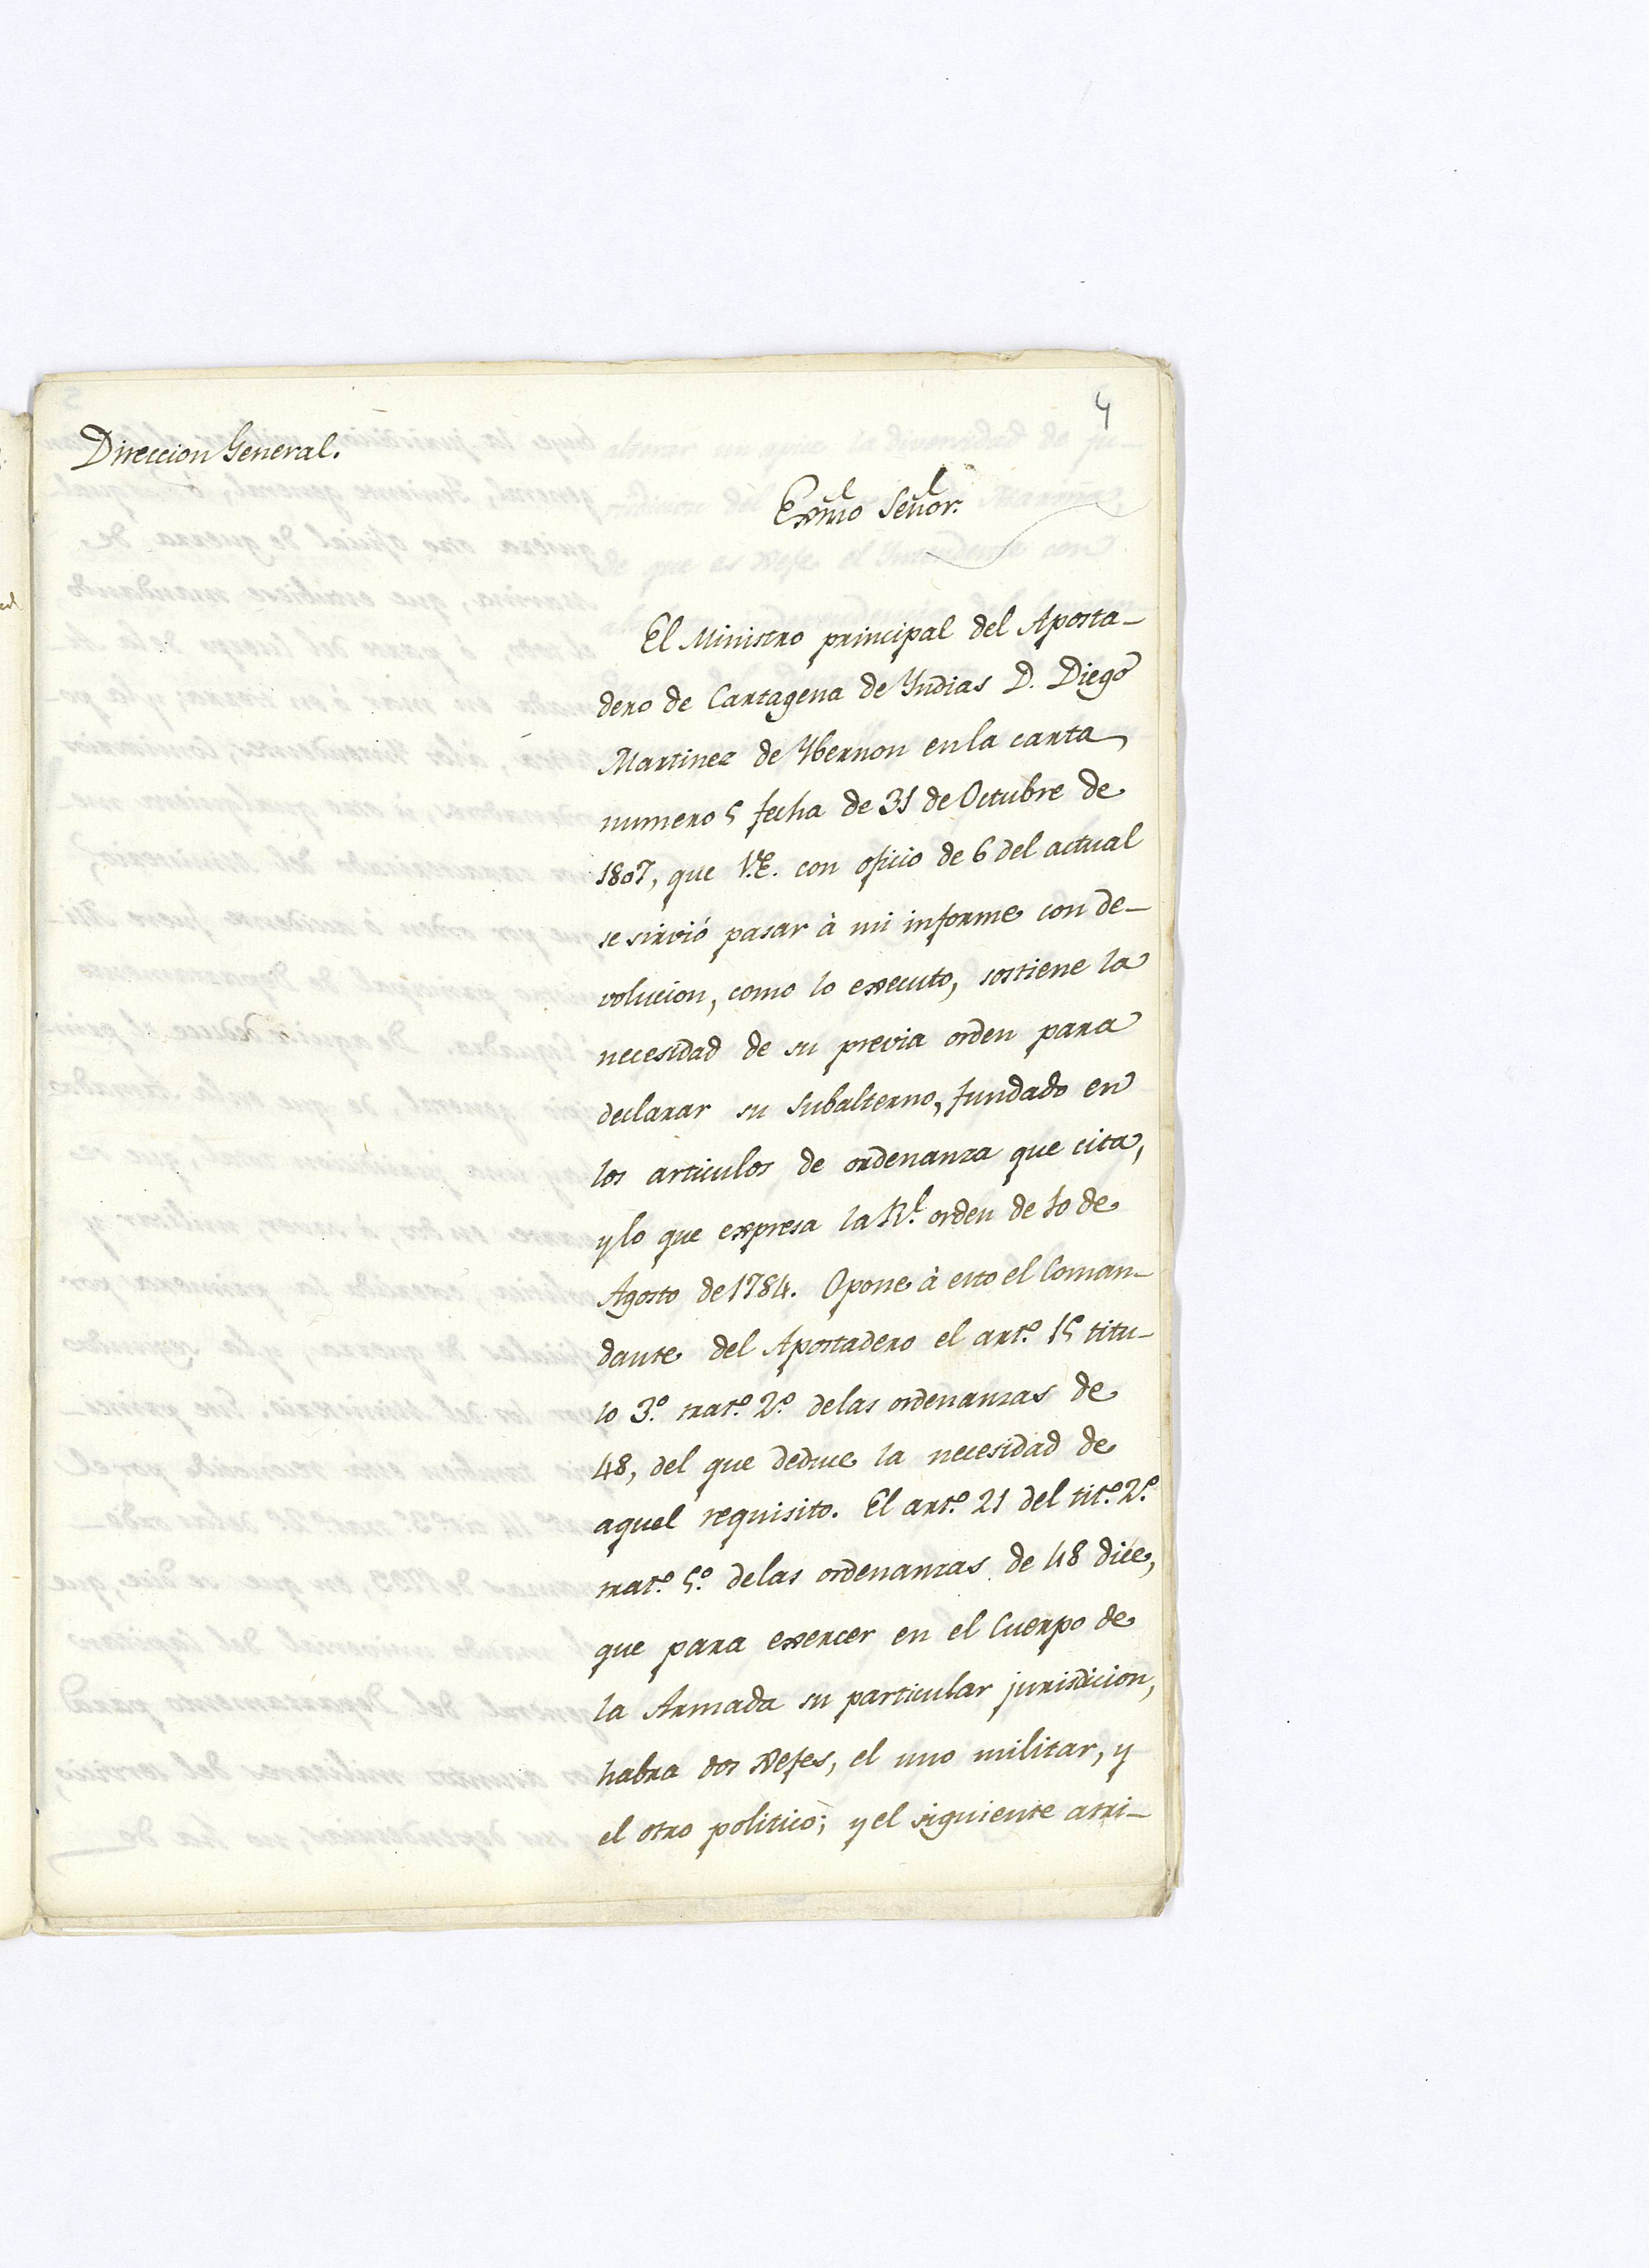 4
Direccion General.
Exmo Señor.
El Ministro principal del Aposta-
dero de Cartagena de Yndias D. Diego
Martinez de Ybernon en la carta
numero 5 fecha de 31 de Octubre de
1807, que V.E. con oficio de 6 del actual
se sirvió pasar à mi informe con de-
volucion, como lo executo, sostiene la
necesidad de su previa orden para
declarar su subalterno, fundado en
los articulos de ordenanza que cita,
y lo que expresa la Rl. orden de 10 de
Agosto de 1784. Opone à esto el Coman-
dante del Apostadero el artº. 15 titu-
lo 3º. tratº. 2º. delas ordenanzas de
48, del que deduce la necesidad de
aquel requisito. El artº. 21 del titº. 2º.
tratº. 5º. delas ordenanzas de 48 dice,
que para exercer en el Cuerpo de
la Armada su particular jurisdicion,
habra dos Xefes, el uno militar, y
el otro politico; y el siguiente atri-